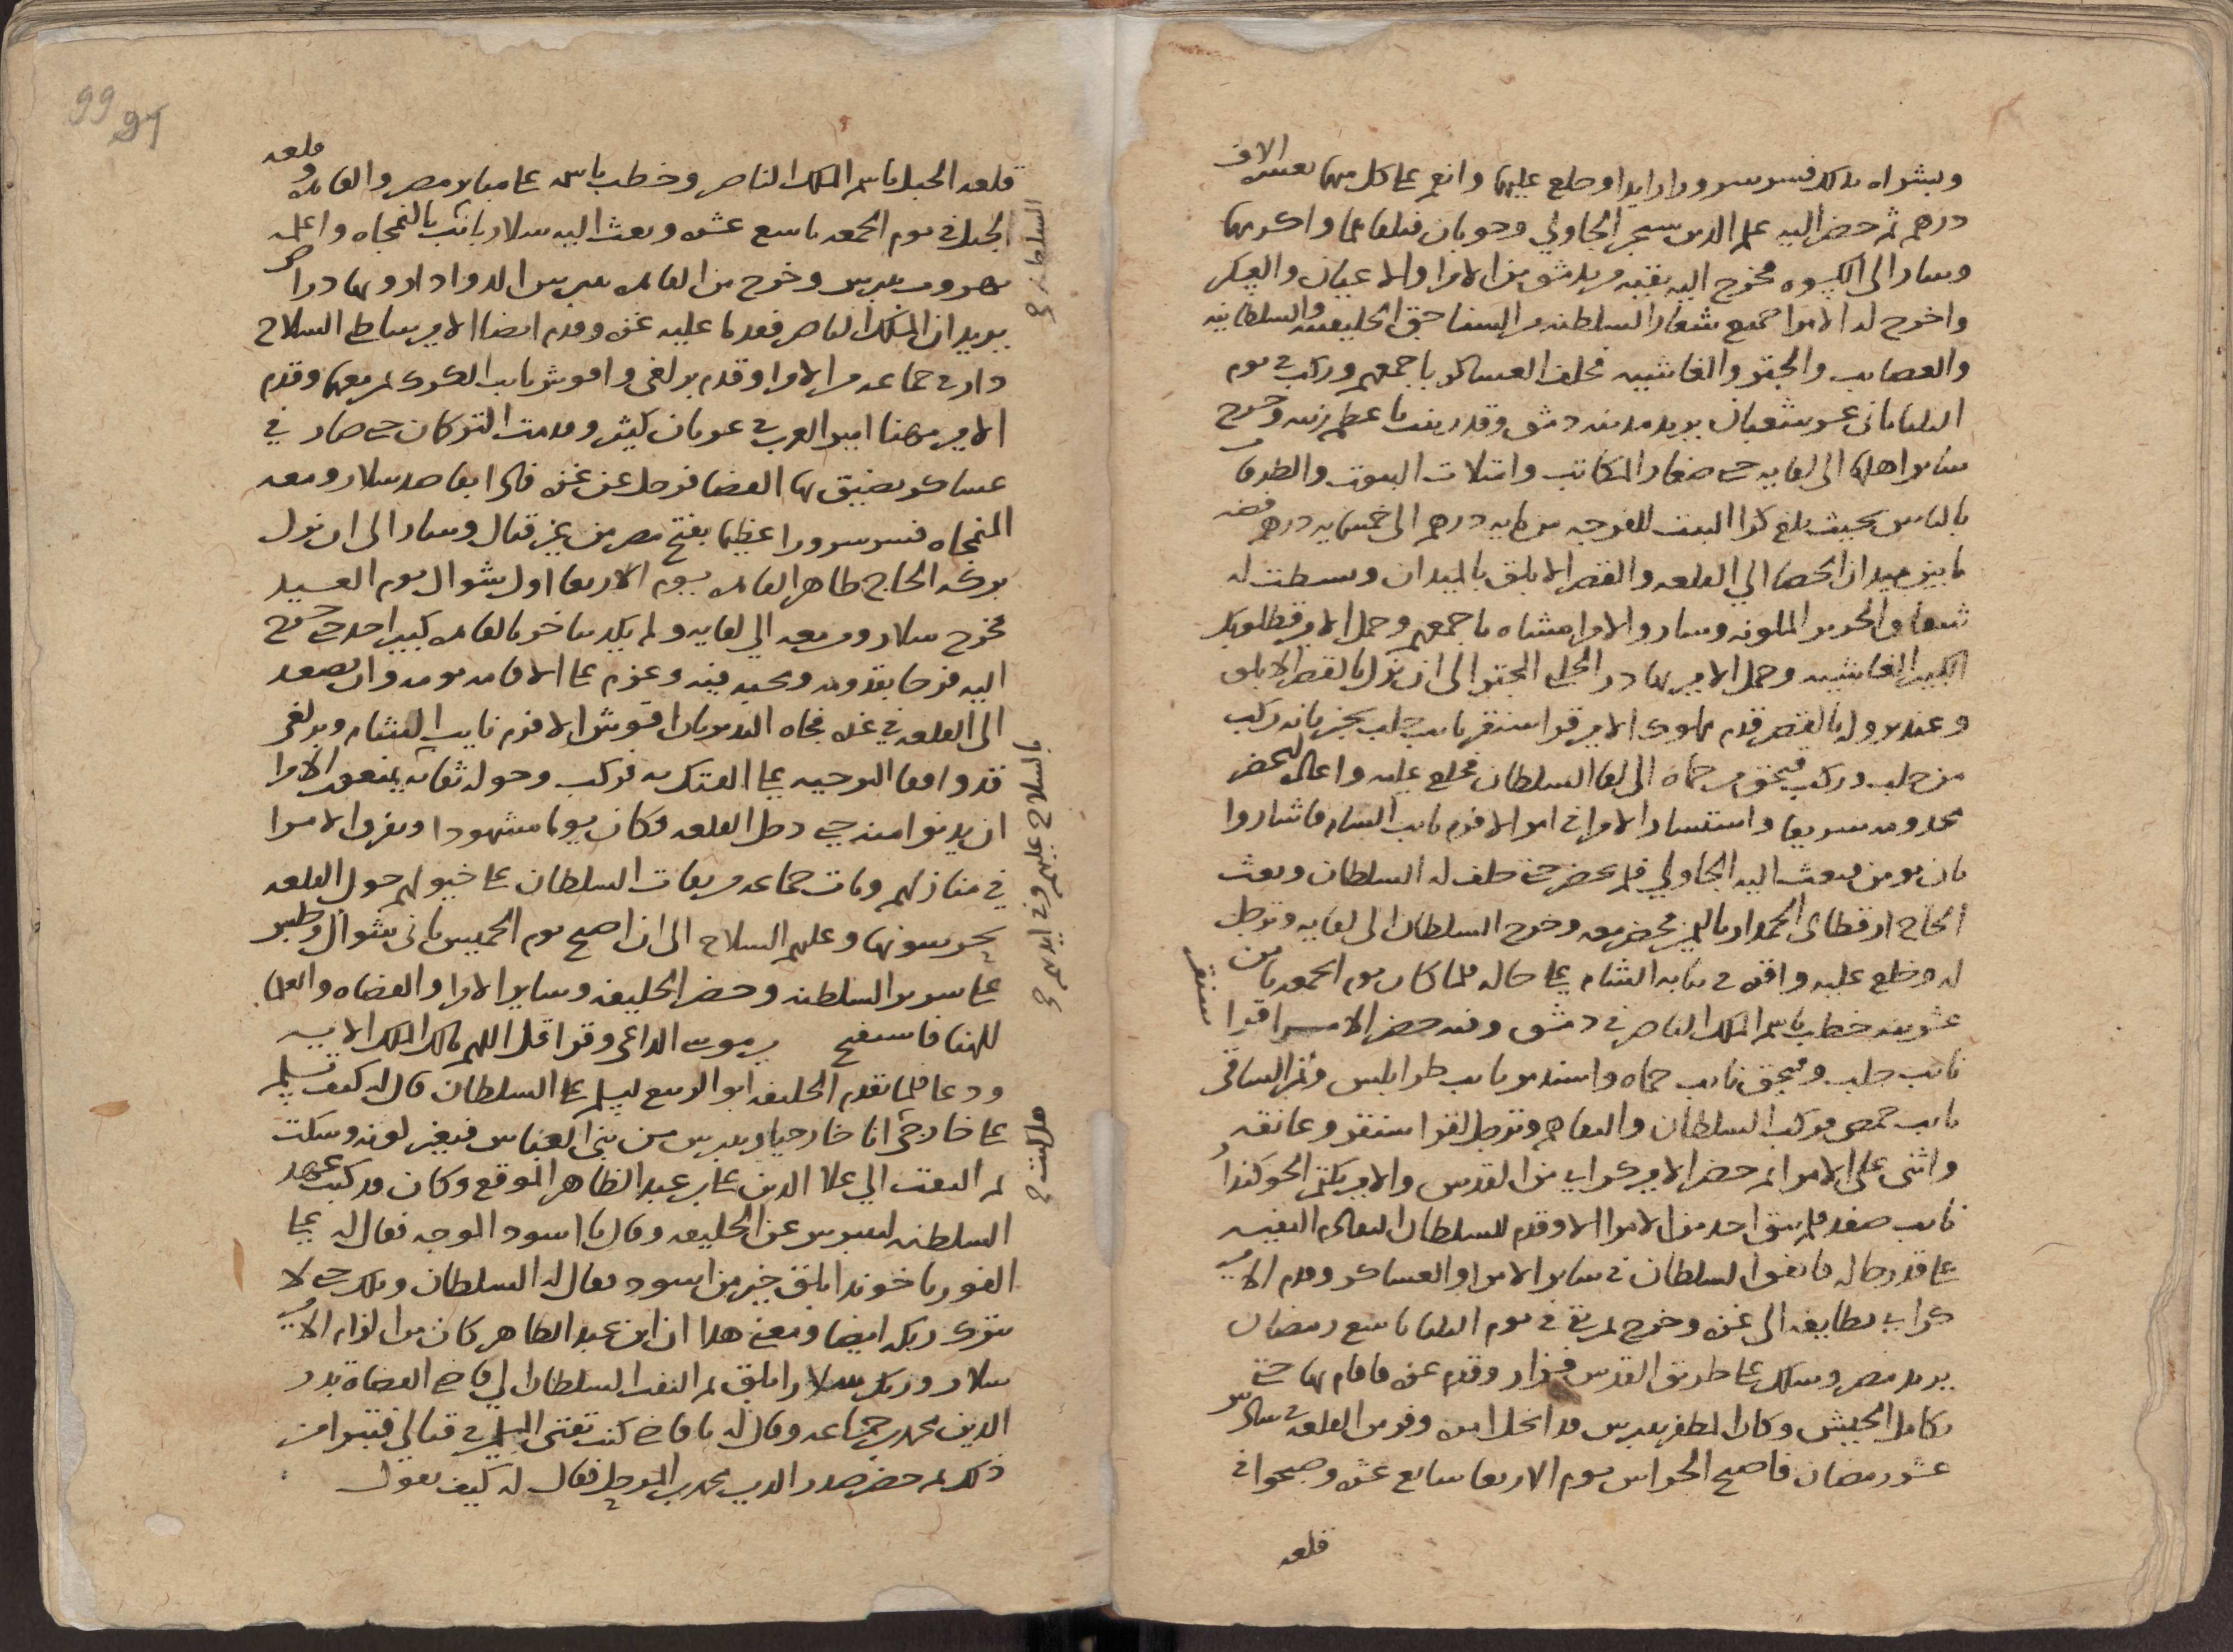 وبشراه بذلك فسر سرورا زايدا وخلع عليهما وانعم على كل منهما بعشرة الاف
درهم ثم حضر اليه علم الدين سنجر الجاولي وجوبان فتلقاهما واكرمهما
وسار الى الكسوه فخرج اليه بقيه من بدمشق من الامرا والاعيان والعسكر
واخرج له الامرا جميع شعار السلطنه من السناجق الخليفتيه والسلطانيه
والعصايب والجتر والغاشيه فحلف العساكر باجمعهم وركب في يوم
الثلثا ثاني عشر شعبان يريد مدينه دمشق وقد زينت باعظم زينه وخرج
ساير اهلها الى لقايه حتى صغار المكاتب وامتلات البيوت والطرقات
بالناس بحيث بلغ كرا البيت للفرجه من مايه درهم الى خمسمايه درهم فضه
ما بين ميدان الحصا الى القلعه والقصر الابلق بالميدان وبسطت له
شقاق الحرير الملونه وسار والامرا مشاه باجمعهم وحمل الامير قطلوبك
الكبير الغاشيه وحمل الامير بهادر الحلبي الجتر الى ان نزل بالقصر الابلق
وعند نزوله بالقصر قدم مملوك الامير قراسنقر نايب حلب يخبر بانه ركب
من حلب وركب قبجق من حماه الى لقا السلطان فخلع عليه واعاده ليحضر
مخدومه سريعا واستشار الامرا في امر الافرم نايب الشام فاشاروا
بان يومن فبعث اليه الجاولي فلم يحضر حتى حلف له السلطان وبعث
الحاج ارقطاي الجمدار باليمين فحضر معه وخرج السلطان الى لقايه وترجل
له وخلع عليه واقره في نيابه الشام على حاله فلما كان يوم الجمعه ثامن
عشرينه خطب باسم الملك الناصر في دمشق وفيه حضر الامير قرا سنقر
نايب حلب وقبجق نايب حماه واسندمر نايب طرابلس وتمر الساقي
نايب حمص فركب السلطان والتقاهم وترجل لقراسنقر وعانقه
واثنى على الامرا ثم حضر الامير كراي من القدس والامير بكتمر الجوكندار
نايب صفد فلم يبق احد من الامرا الا وقدم للسلطان التقادم النفيسه
على قدر حاله فانفق السلطان في ساير الامرا والعساكر وقدم الامير
كراي بطايفه الى غزه وخرج لمرته في يوم الثلثا تاسع رمضان
يريد مصر وسلك على طريق القدس فزار وقدم غزه فاقام بها حتى
تكامل الجيش وكان المظفر بيبرس قد انحل امره وفر من القلعه في سادس
عشر رمضان فاصبح الحراس يوم الاربعا سابع عشره وصيحوا في
قلعه
قلعه الجبل باسم الملك الناصر وخطب باسمه على منابر مصر والقاهره وقلعه
الجبل في يوم الجمعه تاسع عشره وبعث اليه سلار نايب السلطنه بالنمجاه واعلمه
بهروب بيبرس وخرج من القاهره بيبرس الدوادار وبهادراص
يريدان الملك الناصر فقدما عليه غزه وقدم ايضا الامير بينجار السلاح
دار في جماعه من الامرا وقدم برلغي واقوش نايب الكرك لمن معهما وقدم
الامير مهنا امير العرب في عربان كثير وقدمت التركمان حتى صار في
عساكر يضيق بها الفضا فرحل عن غزه فاتى القاصد سلار ومعه
النمجاه فسر سرورا عظيما بفتح مصر من غير قتال وسار الى ان نزل
بركه الحاج ظاهر القاهره يوم الاربعا اول شوال يوم العيد
فخرج سلار ومن معه الى لقايه ولم يكد يتاخر بالقاهره كبير احد حتى خرج
اليه فرحا بقدومه ومحبه فيه وعزم على الاقامه يومه وان يصعد
الى القلعه في غده فجاه الخبر بان اقوش الافرم نايب الشام وبرلغي
قد وافقا البرجيه على الفتك به فركب وحوله ثقاته يمنعون الامرا
ان يدنوا منه حتى دخل القلعه وكان يوما مشهودا وتفرق الامرا
في منازلهم وبات جماعه من ثقات السلطان على خيولهم حول القلعه
يحرسونها وعليهم السلاح الى ان اصبح يوم الخميس ثاني شوال وجلس
على سرير السلطنه وحضر الخليفه وساير الامرا والقضاه والعلما
للهنا فاستفتح يرموت الداعي وقرا قل اللهم مالك الملك الايه
ودعا فلما تقدم الخليفه ابو الربيع ليسلم على السلطان قال له كيف تسلم
على خارجي انا خارجي وبيبرس من بني العباس فتغير لونه وسكت
ثم التفت الى علا الدين علي بن عبد الظاهر الموقع وكان قد كتب عهد
السلطنه لبيبرس عن الخليفه وقال يا اسود الوجه فقال له على
الفور يا خوند ابلق خير من اسود فقال له السلطان ويلك حتى لا
تترك رنكه ايضا ومعنى هذا ان ابن عبد الظاهر كان من الزام الامير
سلار ورنك سلار ابلق ثم التفت السلطان الى قاضي القضاه بدر
الدين محمد بن جماعه وقال له يا قاضي كنت تفتي المسلمين في قتالي فتبرا من
ذلك ثم حضر صدر الدين محمد بن المرحل فقال له كيف تقول